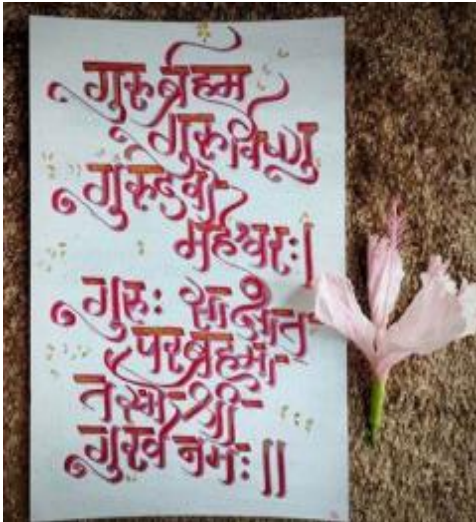 गुरुर्ब्रह्म
गुरुर्विष्णु
गुरुर्देवो
महेश्वरः।
गुरुः साक्षात
परब्रह्म
तस्मै श्री
गुरवे नमः॥